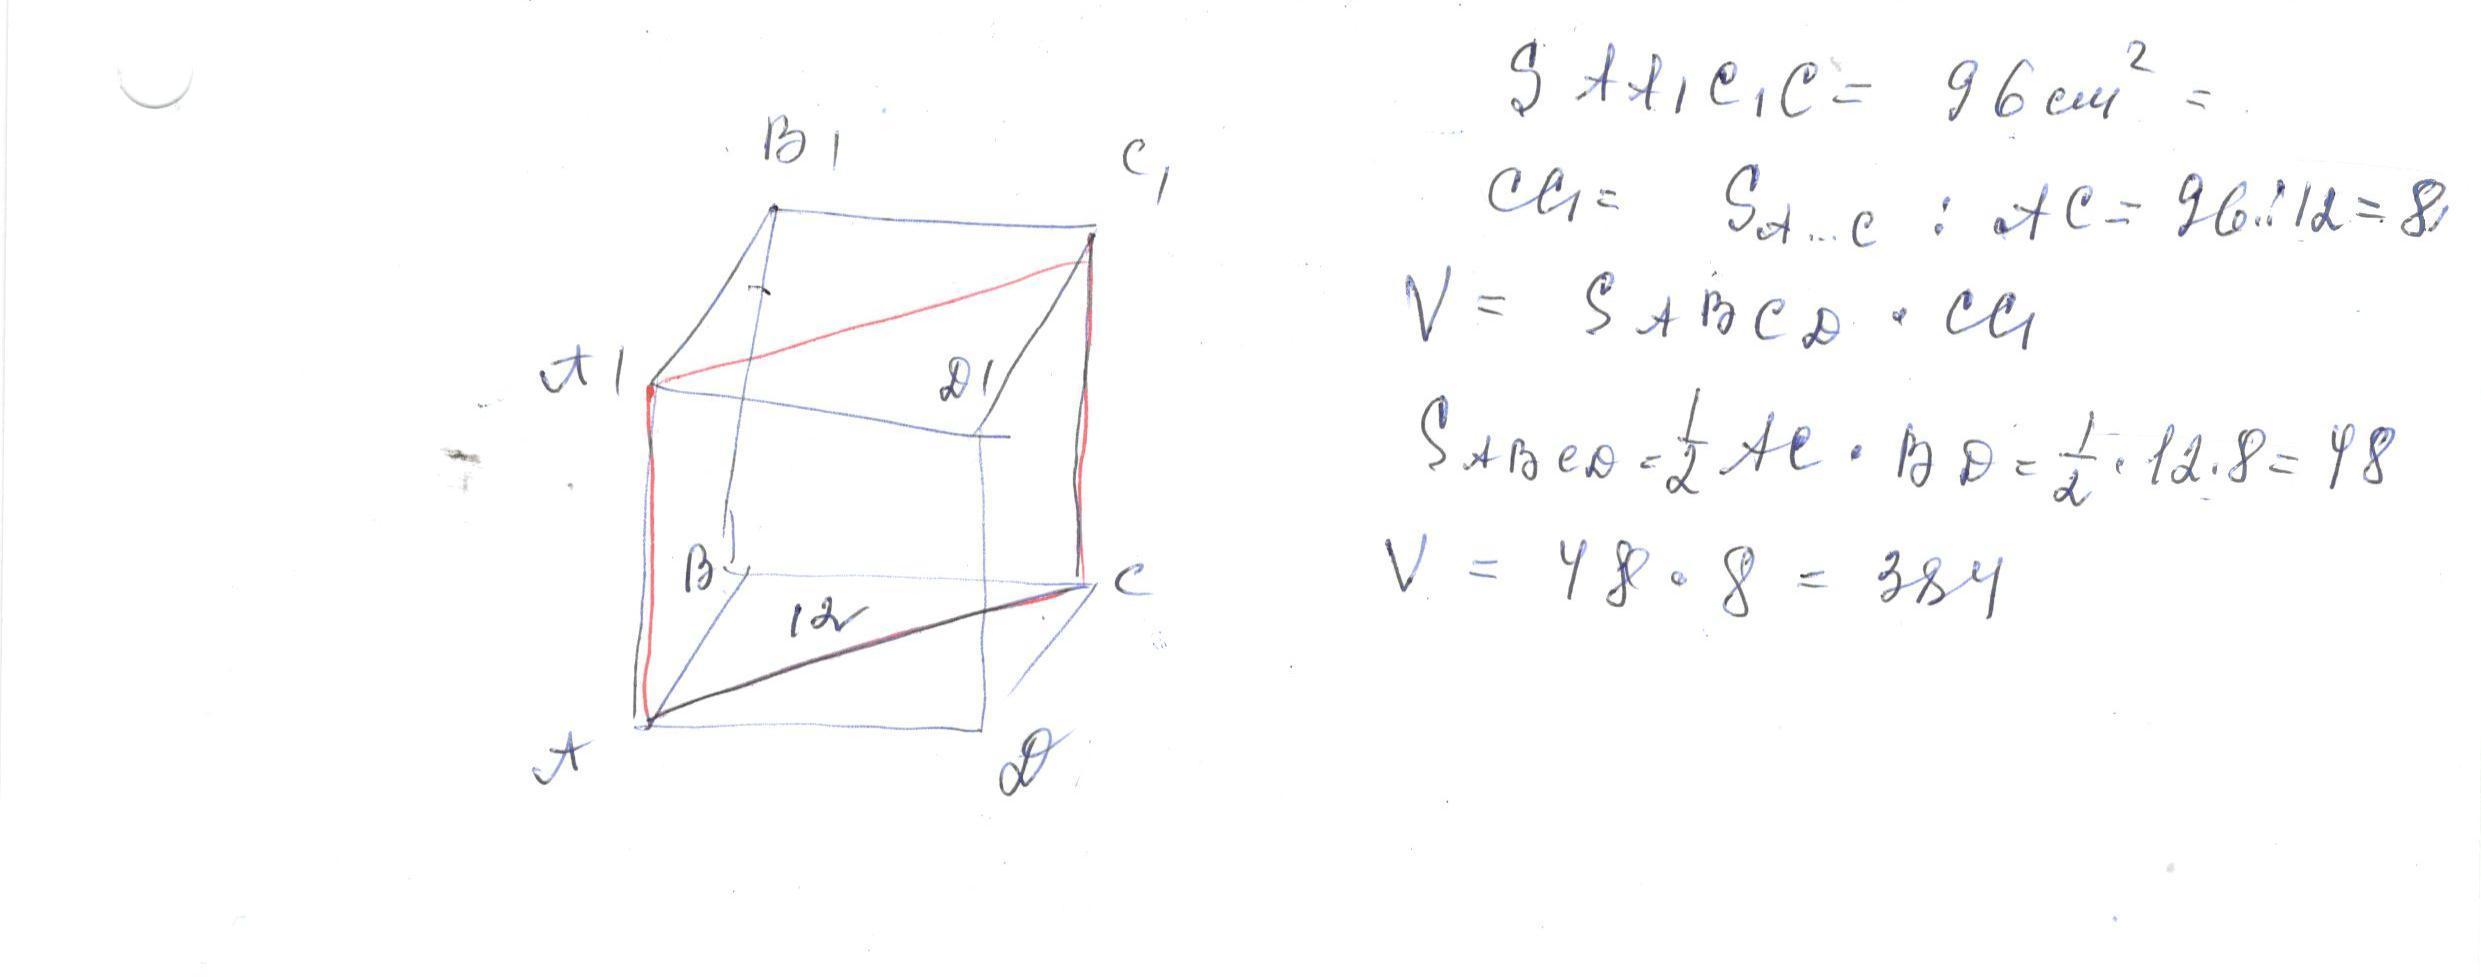 B1
C1
A1
D1
B
C
12
A
D
S AA1C1C = 96 см² =
CC1 = SA...C : AC = 96:12 = 8
V = S ABCD · CC1
S ABCD = 1/2 AC · BD = 1/2 · 12 · 8 = 48
V = 48 · 8 = 384